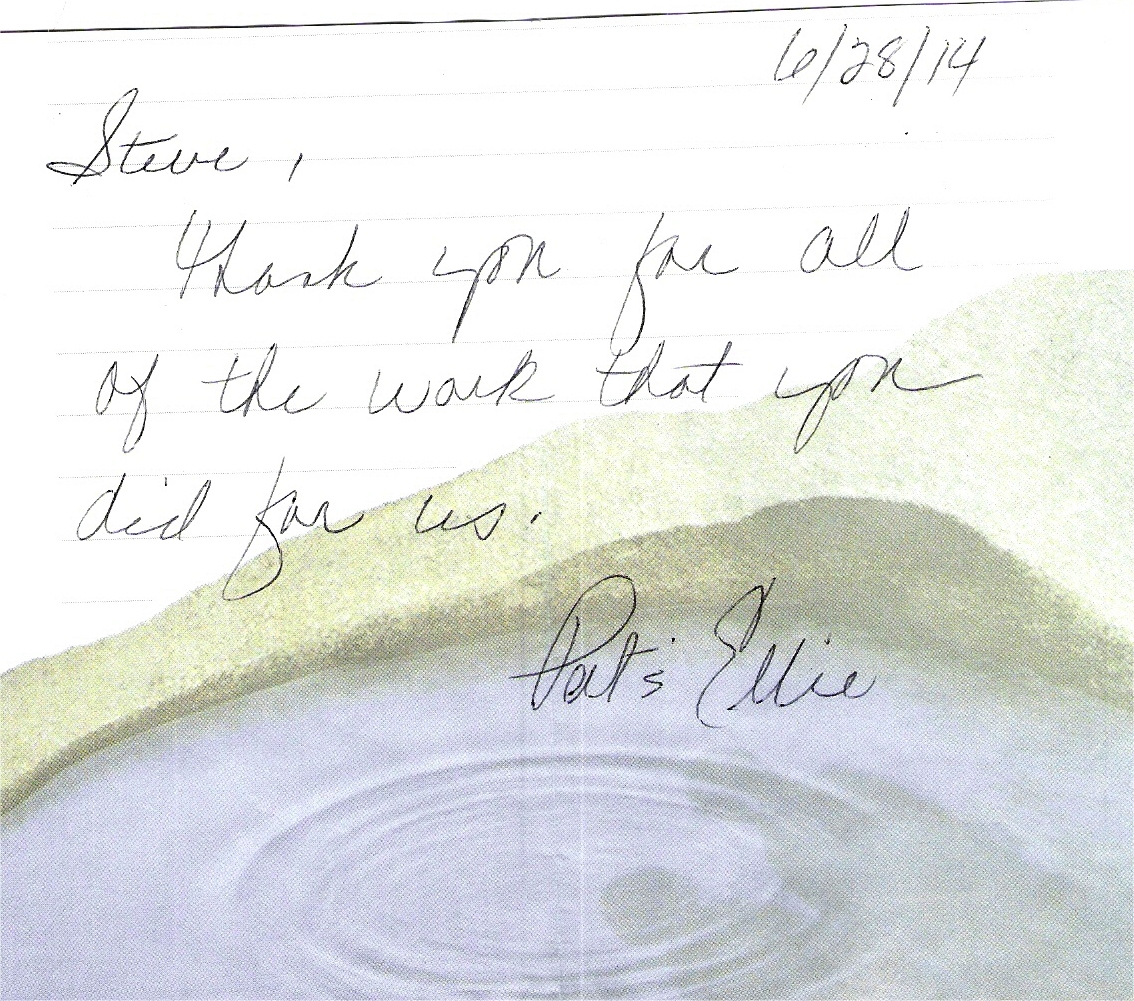 6/28/14
Steve,
Thank you for all
of the work that you
did for us.
Pat & Ellie